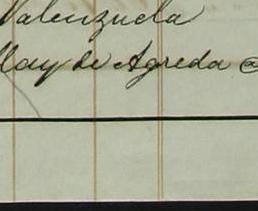 Valenzuela
May de Agreda